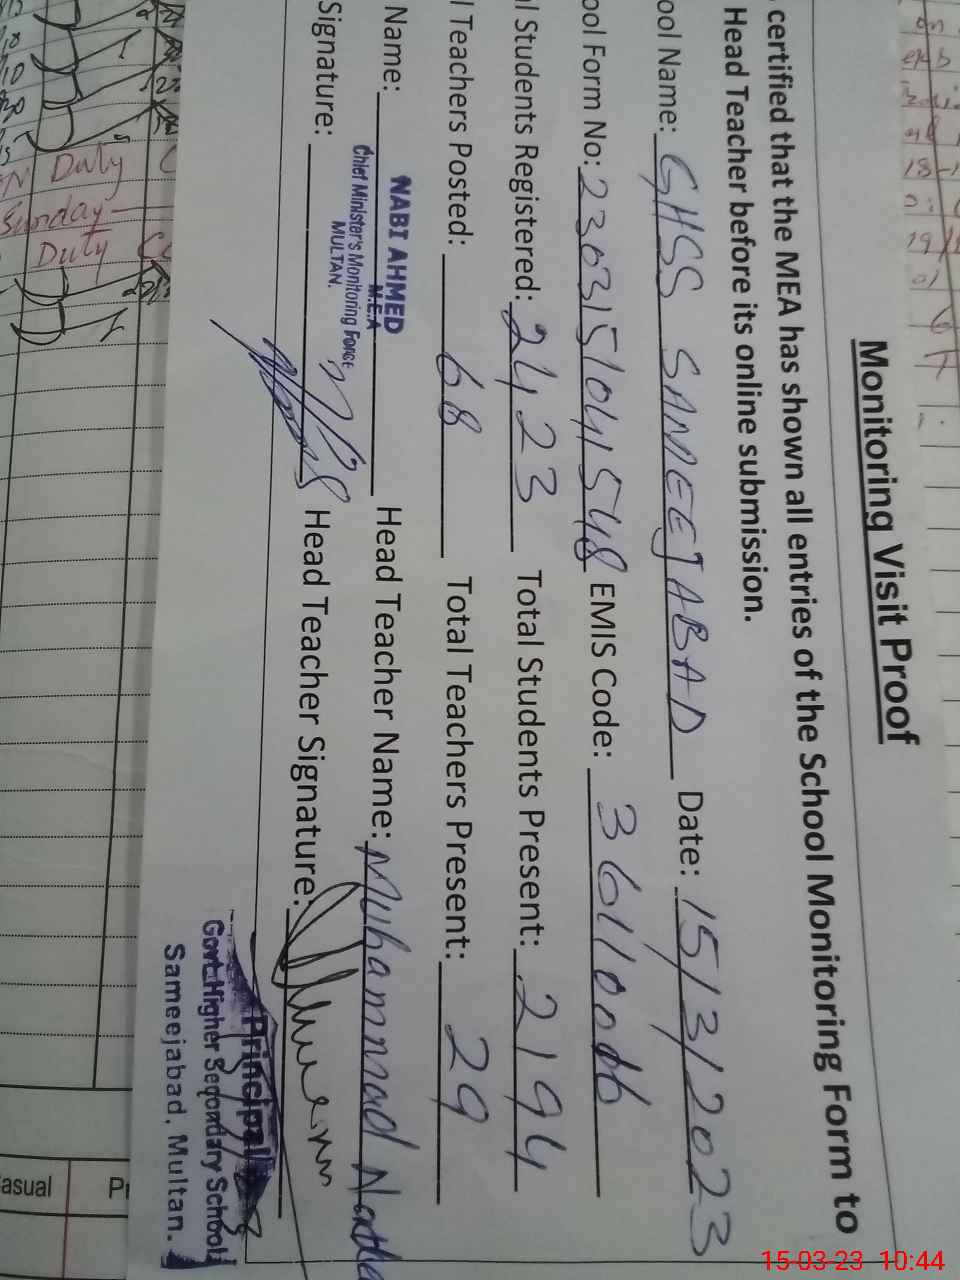 Monitoring Visit Proof
certified that the MEA has shown all entries of the School Monitoring Form to
Head Teacher before its online submission.
ool Name: GHSS SAMEEJABAD Date: 15/3/2023
ool Form No: 2303151041548 EMIS Code: 36110006
l Students Registered: 2423 Total Students Present: 2194
l Teachers Posted: 68 Total Teachers Present: 29
Name: NABI AHMED Head Teacher Name: Muhammad
M.E.A
Chief Minister's Monitoring Force
MULTAN.
Signature: Head Teacher Signature:
Principal
Govt. Higher Secondary School
Sameejabad, Multan.
Duty
Sunday
Duty
asual
15-03-23 10:44